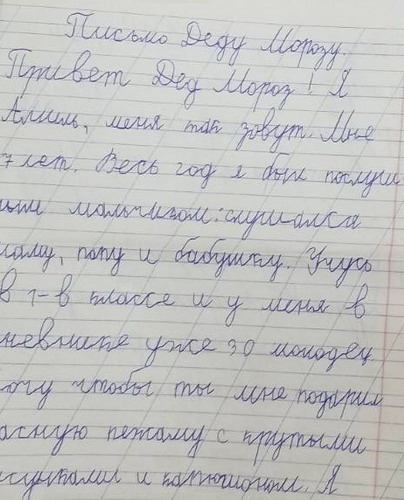 Письмо Деду Морозу
Привет Дед Мороз! Я
Алиль, меня так зовут. Мне
7 лет. Весь год я был послуш
ным мальчизом: слушался
маму, папу и бабушку. Учусь
в 1-в классе и у меня в
невнике уже 30 молодец
хочу чтобы ты мне подарил
асную пежаму с крутыми
исунками и капюшоном. Я